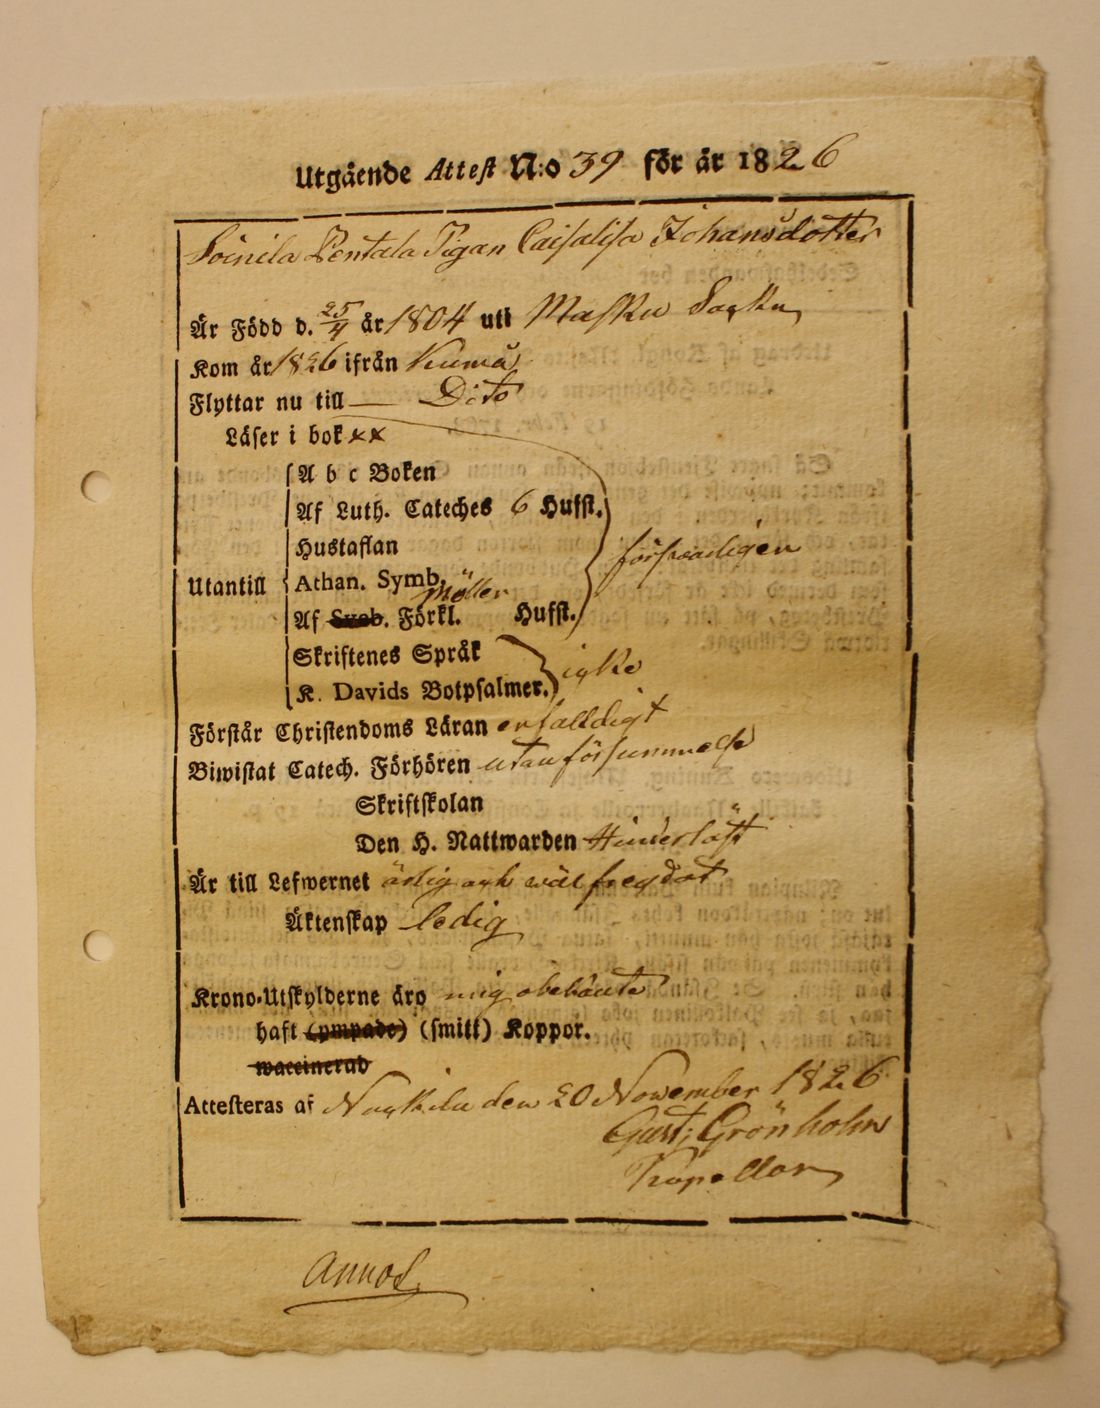 Utgående Attest N:o 39 för år 1826
Soinila Pentala Pigan Caisalisa Johansdotter
Är Född d. 25/4 år 1804 uti Masku Sockn
Kom år 1826 ifrån Kumå
Flyttar nu till — Dito
Läser i bok xx
A b c Boken
Af Luth. Cateches 6 Hufst.
Hustaflan
Utantill Athan. Symb. försvarligen
Möller
Af Sveb. Förkl. Hufst.
Skriftenes Språk
K. Davids Botpsalmer. icke
Förstår Christendoms Läran enfalldigt
Biwistat Catech. Förhören utan försummelse
Skriftskolan
Den H. Nattwarden Hinderlöst
Är till Lefwernet ärlig och wälfregdat
Äktenskap ledig
Krono-Utskylderne äro mig obekante
haft (ympade) (smitt) Koppor.
waccinerad
Attesteras af den 20 November 1826
Gust: Grönholm
Capellan
Annot.